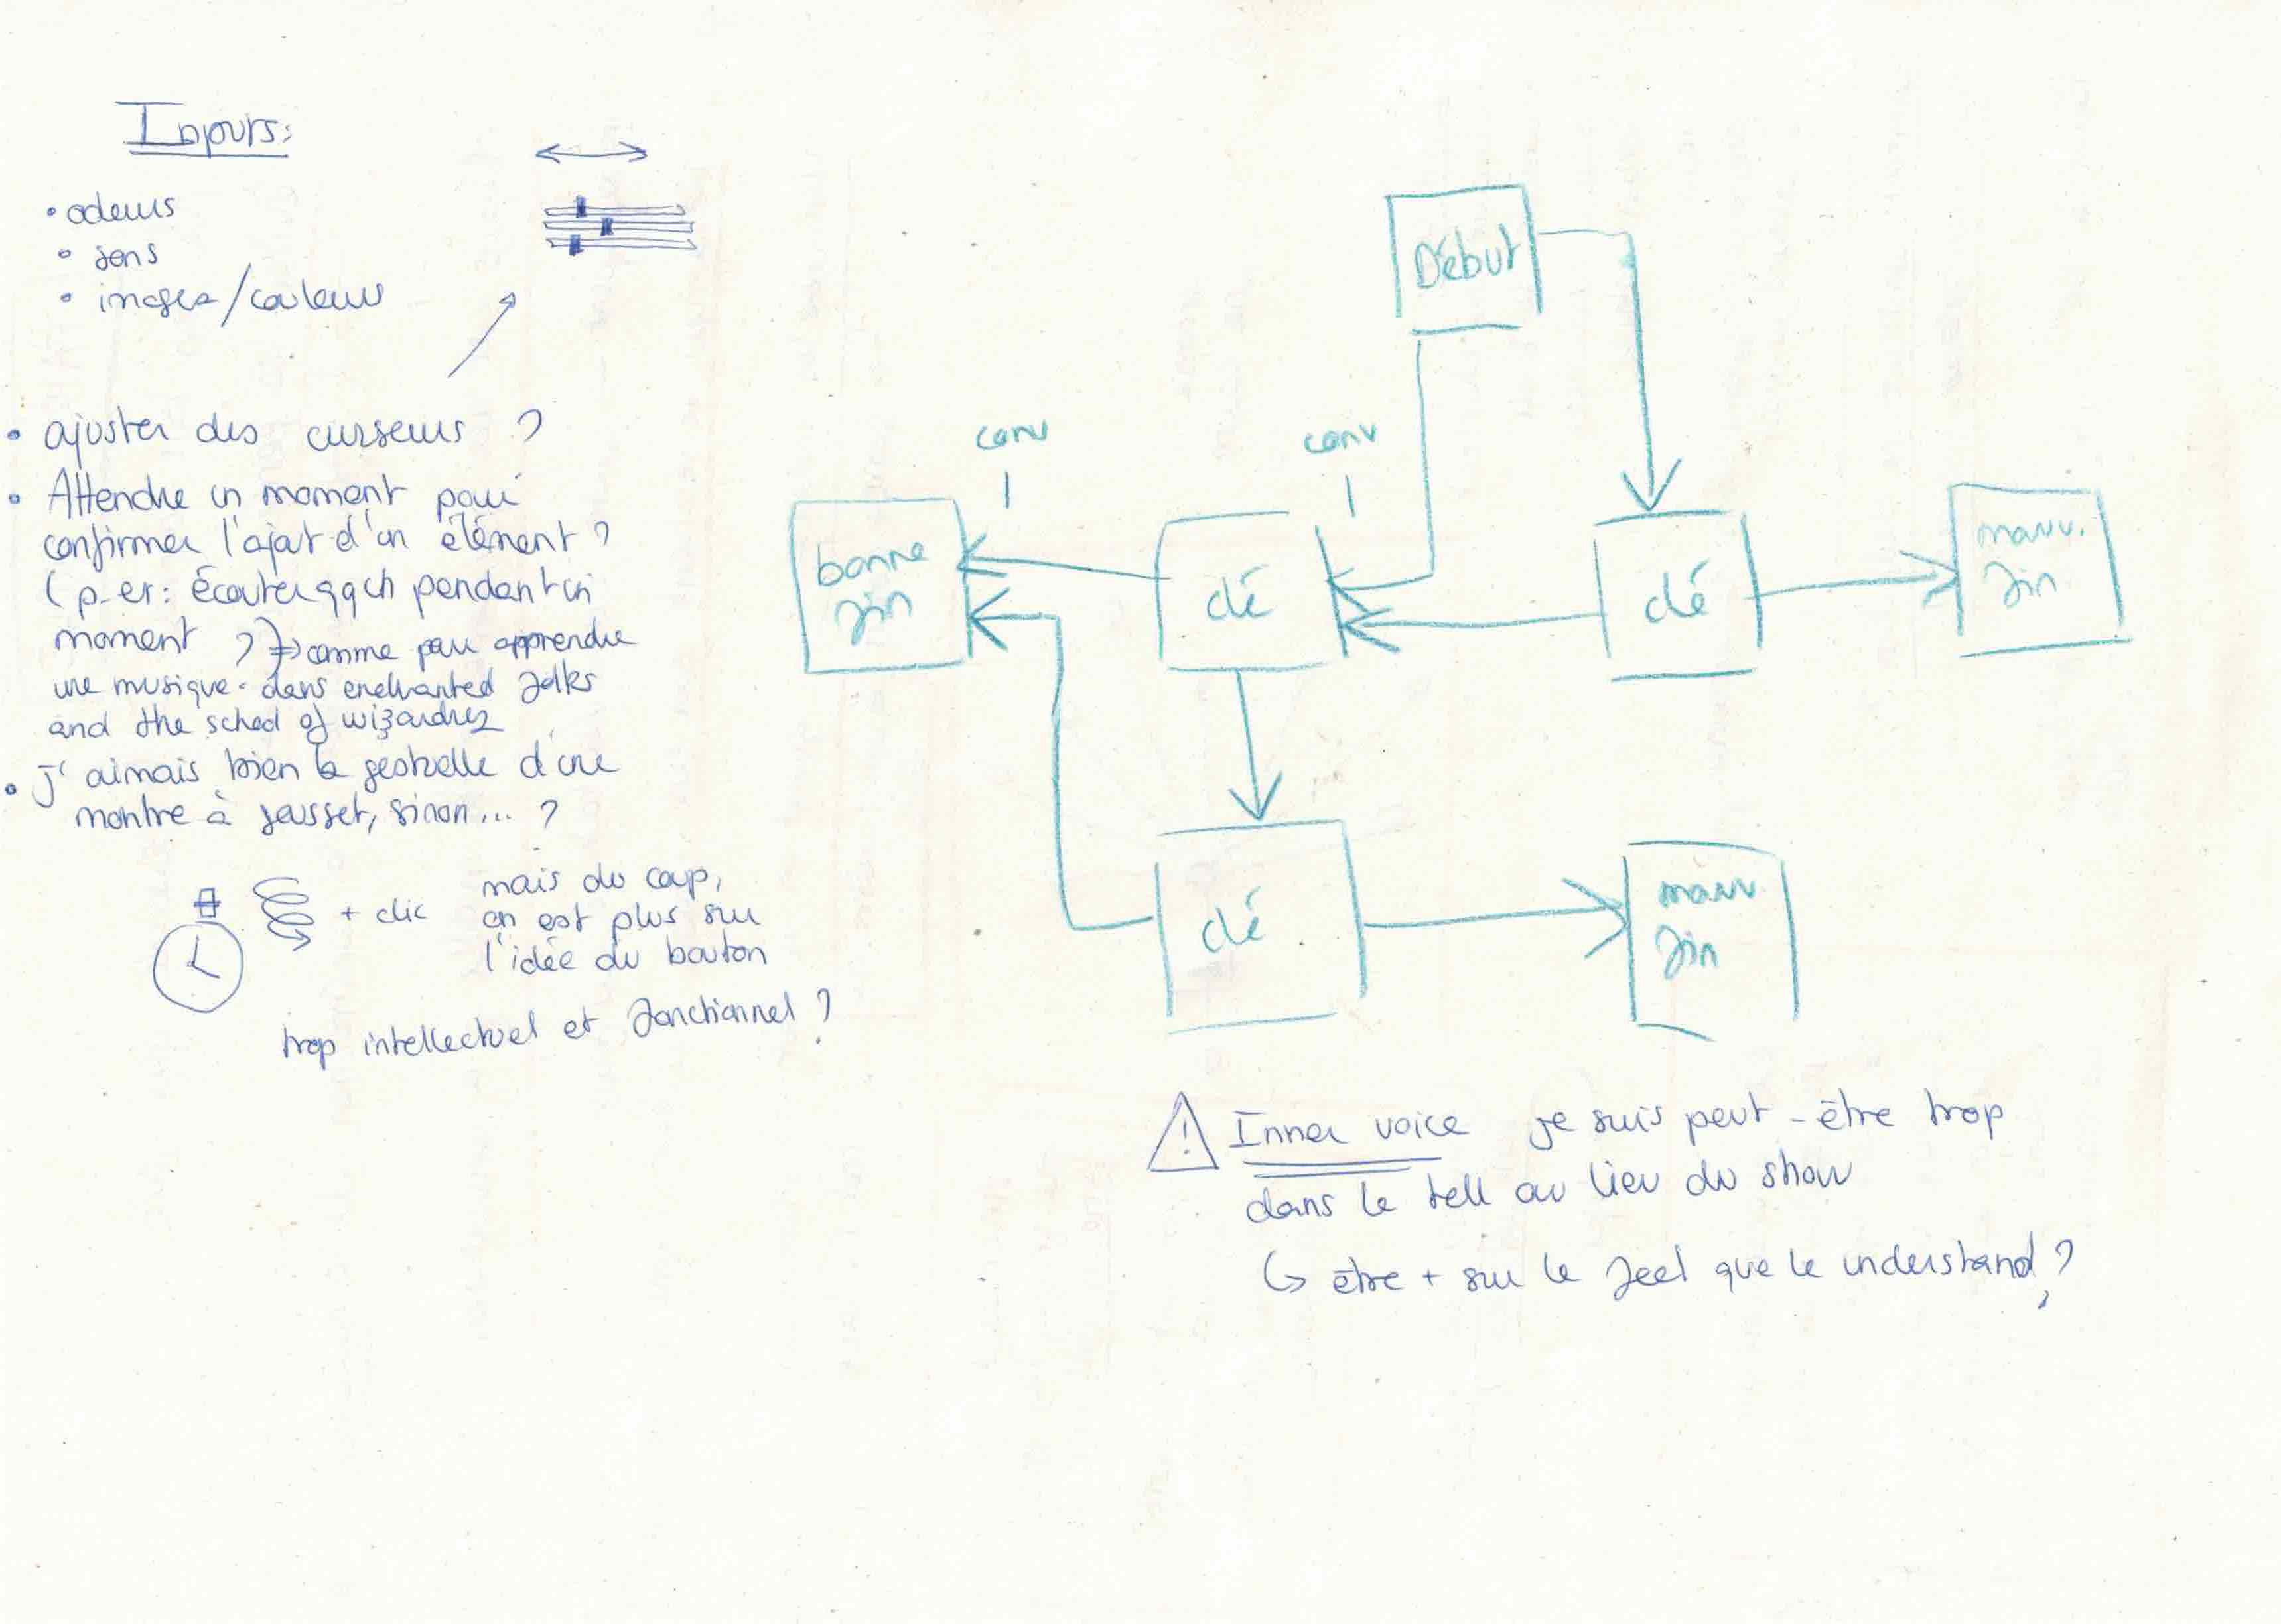 Inputs:
• odeurs
• sens
• images/couleurs
• ajuster des curseurs ?
• Attendre un moment pour
confirmer l'ajout d'un élément ?
(p.ex: écouter qqch pendant un
moment ?) => comme pour apprendre
une musique dans enchanted folks
and the school of wizardry
• j'aimais bien la gestuelle d'une
montre à gousset, sinon... ?
+ clic
mais du coup,
on est plus sur
l'idée du bouton
trop intellectuel et fonctionnel ?
Début
conv
conv
bonne
fin
clé
clé
mauv.
fin
clé
mauv
fin
! Inner voice je suis peut-être trop
dans le tell au lieu du show
↳ être + sur le feel que le understand ?